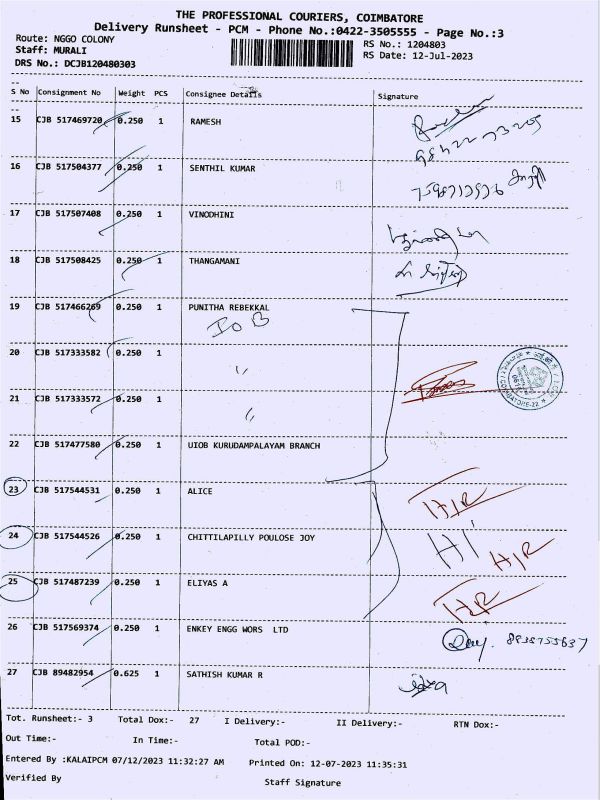 THE PROFESSIONAL COURIERS, COIMBATORE
Delivery Runsheet - PCM - Phone No.:0422-3505555 - Page No.:3
Route: NGGO COLONY RS No.: 1204803
Staff: MURALI RS Date: 12-Jul-2023
DRS No.: DCJB120480303
S No Consignment No Weight PCS Consignee Details Signature
15 CJB 517469720 0.250 1 RAMESH
16 CJB 517504377 0.250 1 SENTHIL KUMAR
17 CJB 517507408 0.250 1 VINODHINI
18 CJB 517508425 0.250 1 THANGAMANI
19 CJB 517466269 0.250 1 PUNITHA REBEKKAL
IOB
20 CJB 517333582 0.250 1 "
21 CJB 517333572 0.250 1 "
22 CJB 517477580 0.250 1 UIOB KURUDAMPALAYAM BRANCH
23 CJB 517544531 0.250 1 ALICE H/R
24 CJB 517544526 0.250 1 CHITTILAPILLY POULOSE JOY H/R
25 CJB 517487239 0.250 1 ELIYAS A H/R
26 CJB 517569374 0.250 1 ENKEY ENGG WORS LTD
27 CJB 89482954 0.625 1 SATHISH KUMAR R
Tot. Runsheet:- 3 Total Dox:- 27 I Delivery:- II Delivery:- RTN Dox:-
Out Time:- In Time:- Total POD:-
Entered By :KALAIPCM 07/12/2023 11:32:27 AM Printed On: 12-07-2023 11:35:31
Verified By Staff Signature